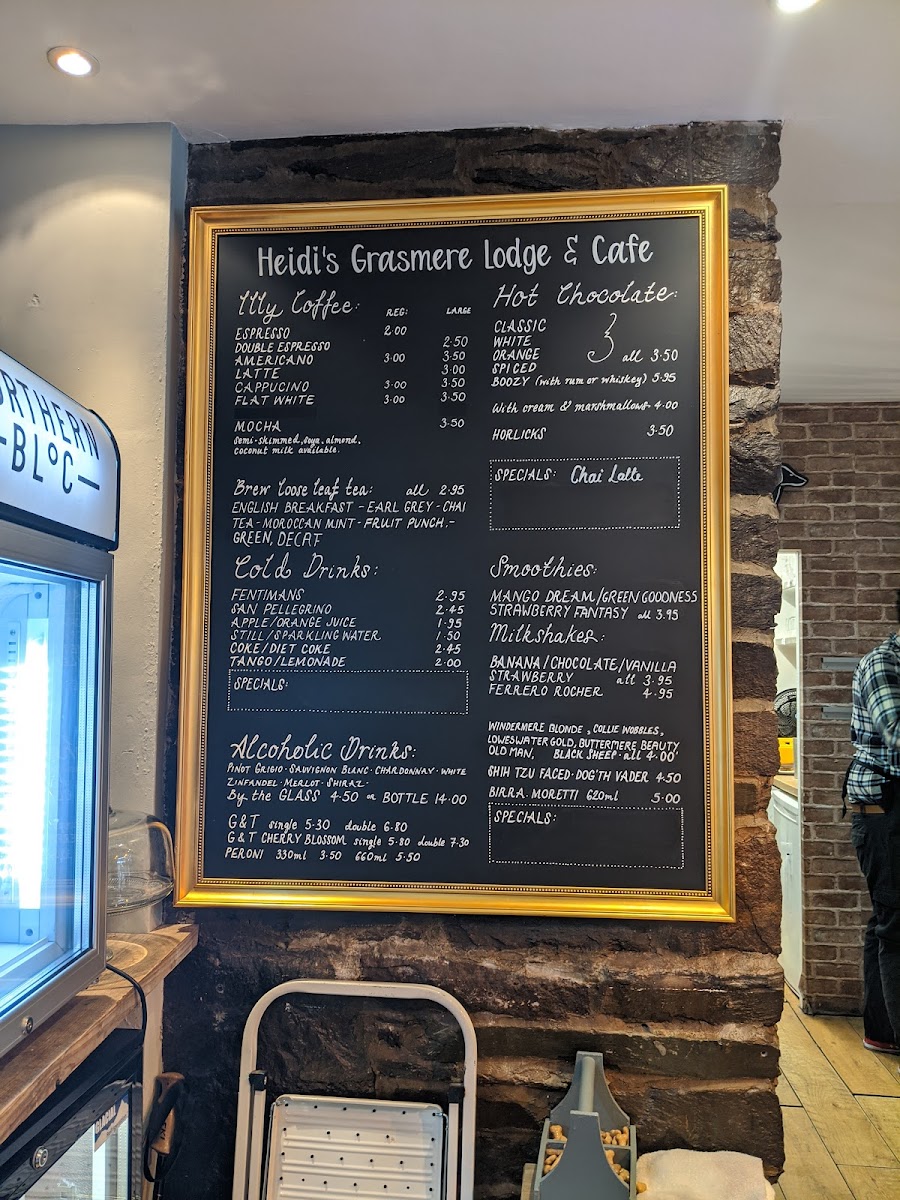 Heidi's Grasmere Lodge & Cafe
Illy Coffee: REG: LARGE
ESPRESSO 2.00
DOUBLE ESPRESSO 2.50
AMERICANO 3.00 3.50
LATTE 3.00
CAPPUCINO 3.00 3.50
FLAT WHITE 3.00 3.50
MOCHA 3.50
semi-skimmed, soya, almond,
coconut milk available.
Brew loose leaf tea: all 2.95
ENGLISH BREAKFAST - EARL GREY - CHAI
TEA - MOROCCAN MINT - FRUIT PUNCH. -
GREEN, DECAF
Cold Drinks:
FENTIMANS 2.95
SAN PELLEGRINO 2.45
APPLE/ORANGE JUICE 1.95
STILL/SPARKLING WATER 1.50
COKE/DIET COKE 2.45
TANGO/LEMONADE 2.00
SPECIALS:
Alcoholic Drinks:
PINOT GRIGIO · SAUVIGNON BLANC · CHARDONNAY · WHITE
ZINFANDEL · MERLOT · SHIRAZ ·
By the GLASS 4.50 or BOTTLE 14.00
G&T single 5.30 double 6.80
G&T CHERRY BLOSSOM single 5.80 double 7.30
PERONI 330ml 3.50 660ml 5.50
Hot Chocolate:
CLASSIC
WHITE
ORANGE all 3.50
SPICED
BOOZY (with rum or whiskey) 5.95
With cream & marshmallows 4.00
HORLICKS 3.50
SPECIALS: Chai Latte
Smoothies:
MANGO DREAM/GREEN GOODNESS
STRAWBERRY FANTASY all 3.95
Milkshakes:
BANANA/CHOCOLATE/VANILLA
STRAWBERRY all 3.95
FERRERO ROCHER 4.95
WINDERMERE BLONDE, COLLIE WOBBLES,
LOWESWATER GOLD, BUTTERMERE BEAUTY
OLD MAN, BLACK SHEEP · all 4.00
SHIH TZU FACED · DOG'TH VADER 4.50
BIRRA MORETTI 620ml 5.00
SPECIALS:
ORTHERN
—BLOC—
GLACIAL